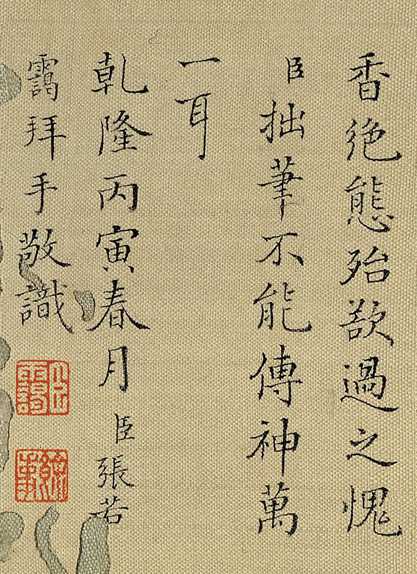 香絶態殆欲過之愧
臣拙筆不能傳神萬
一耳
乾隆丙寅春月臣張若
靄拜手敬識
臣靄